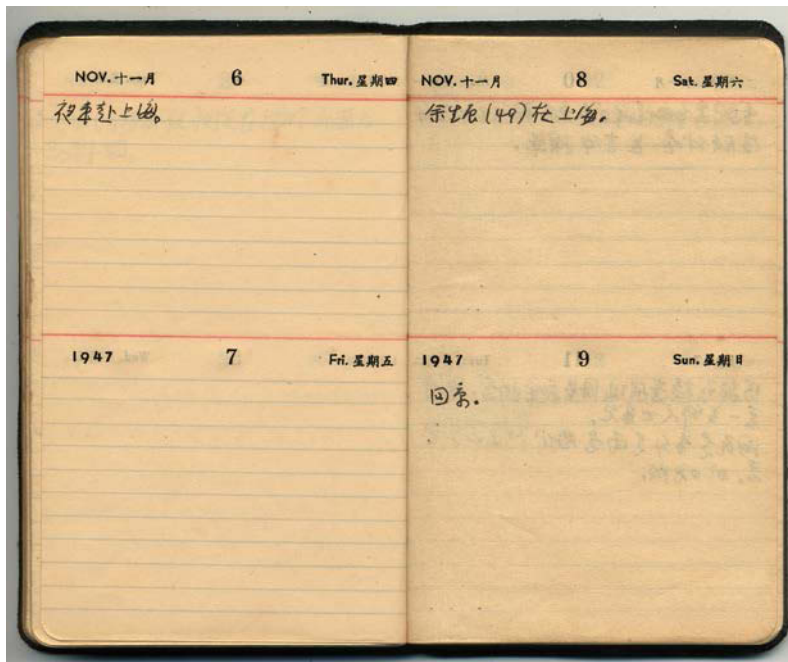 NOV. 十一月 6 Thur. 星期四
夜車赴上海。
1947 7 Fri. 星期五
NOV. 十一月 8 Sat. 星期六
余生辰(49)在上海。
1947 9 Sun. 星期日
回京.